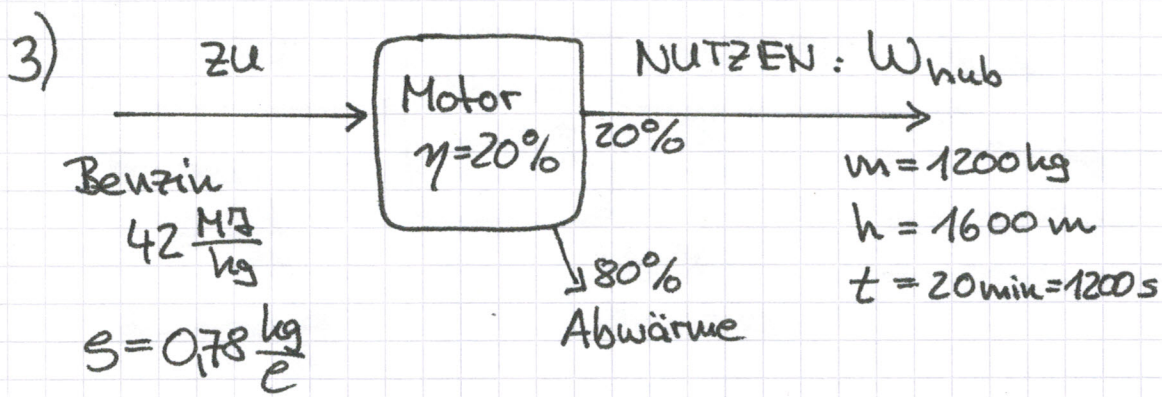 3)
ZU
Benzin
42 MJ/kg
ρ = 0,78 kg/ℓ
Motor
η=20%
20%
80%
Abwärme
NUTZEN: W_hub
m = 1200 kg
h = 1600 m
t = 20 min = 1200 s